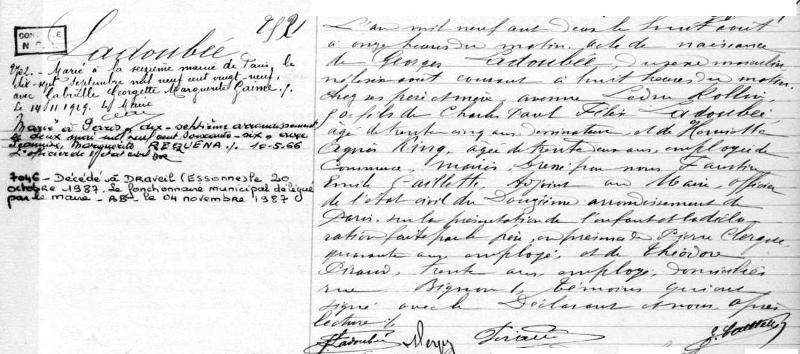 2921
CONTRÔLE
Ladoubée
2921 - Marié à la seizième mairie de Paris, le
dix-sept Septembre mil neuf cent vingt-neuf,
avec Gabrielle Georgette Marguerite /.
Le 14.11.1929. Le Maire
Marié à Paris, dix-septième arrondissement
le deux mai mil neuf cent soixante-six avec
Jeannine, Marguerite REQUENA /. 10.5.66
L'officier de l'état civil
7046 - Décédé à DRAVEIL (Essonne) le 20
octobre 1987. Le fonctionnaire municipal délégué
par le maire - AB - le 04 novembre 1987
L'an mil neuf cent deux le huit août
à onze heures du matin. Acte de naissance
de Georges Ladoubée, du sexe masculin
né le six août courant à huit heures du matin,
chez ses père et mère avenue Ledru Rollin,
fils de Charles Paul Félix Ladoubée,
âgé de trente cinq ans dessinateur, et de Henriette
Agnès King, âgée de trente deux ans, employée de
Commerce, mariés. Dressé par nous Faustin
Emile Caillette, Adjoint au Maire, officier
de l'état civil du Douzième arrondissement de
Paris, sur la présentation de l'enfant et la décla-
ration faite par le père, en présence de Pierre
quarante ans employé, et de Théodore
Piraud, trente ans, employé, domiciliés
rue Bignon 1, témoins qui ont
signé avec le Déclarant et nous, après
lecture /.
Ladoubée